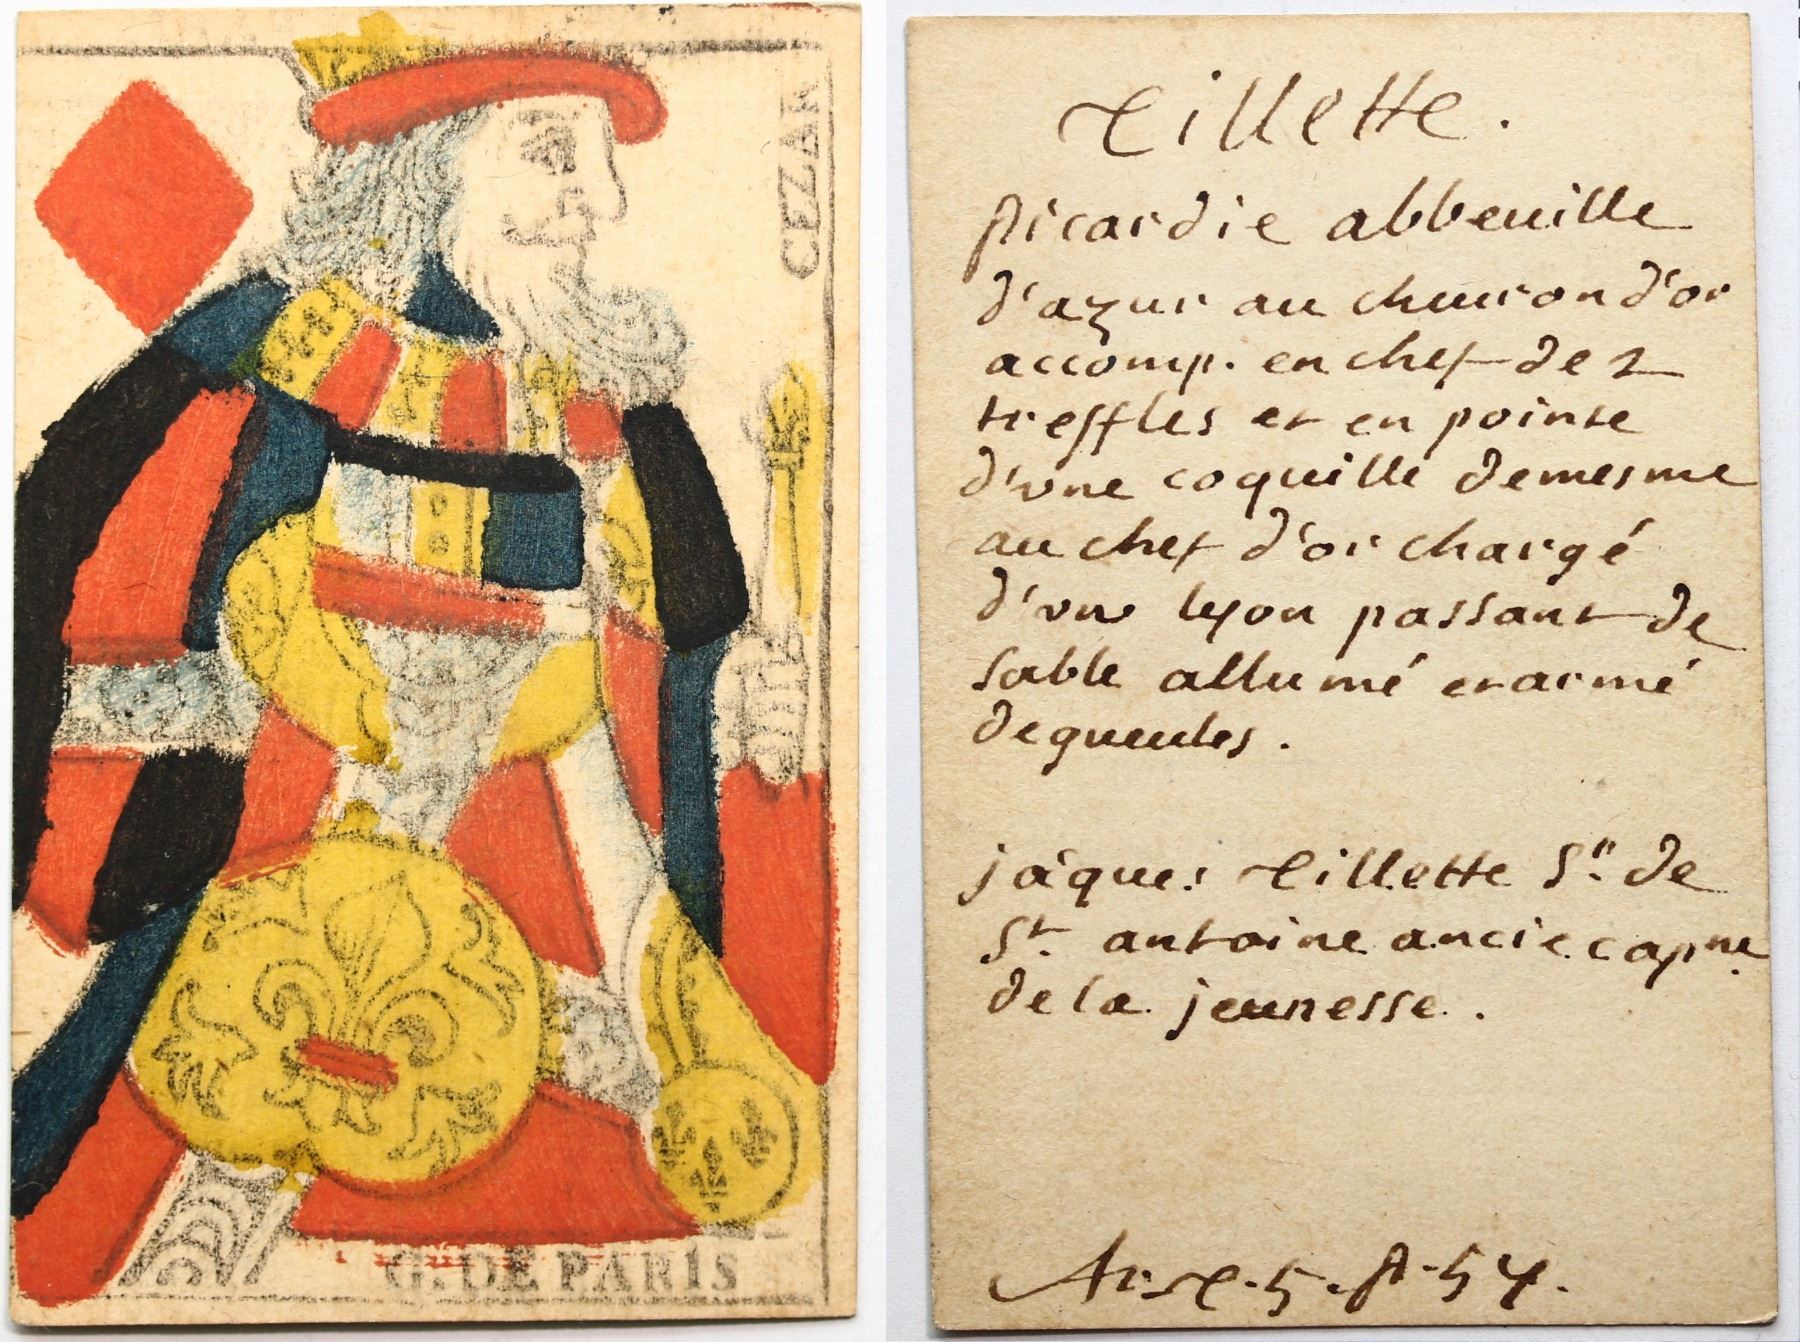 CEZAR
G. DE PARIS
Tillette.
picardie abbeuille
d'azur au cheuron d'or
accomp. en chef de 2
treffles et en pointe
d'vne coquille demesme
au chef d'or chargé
d'vn lyon passant de
sable allumé et armé
de gueules.
jaques Tillette Sr. de
St. antoine ancie capne
de la jeunesse.